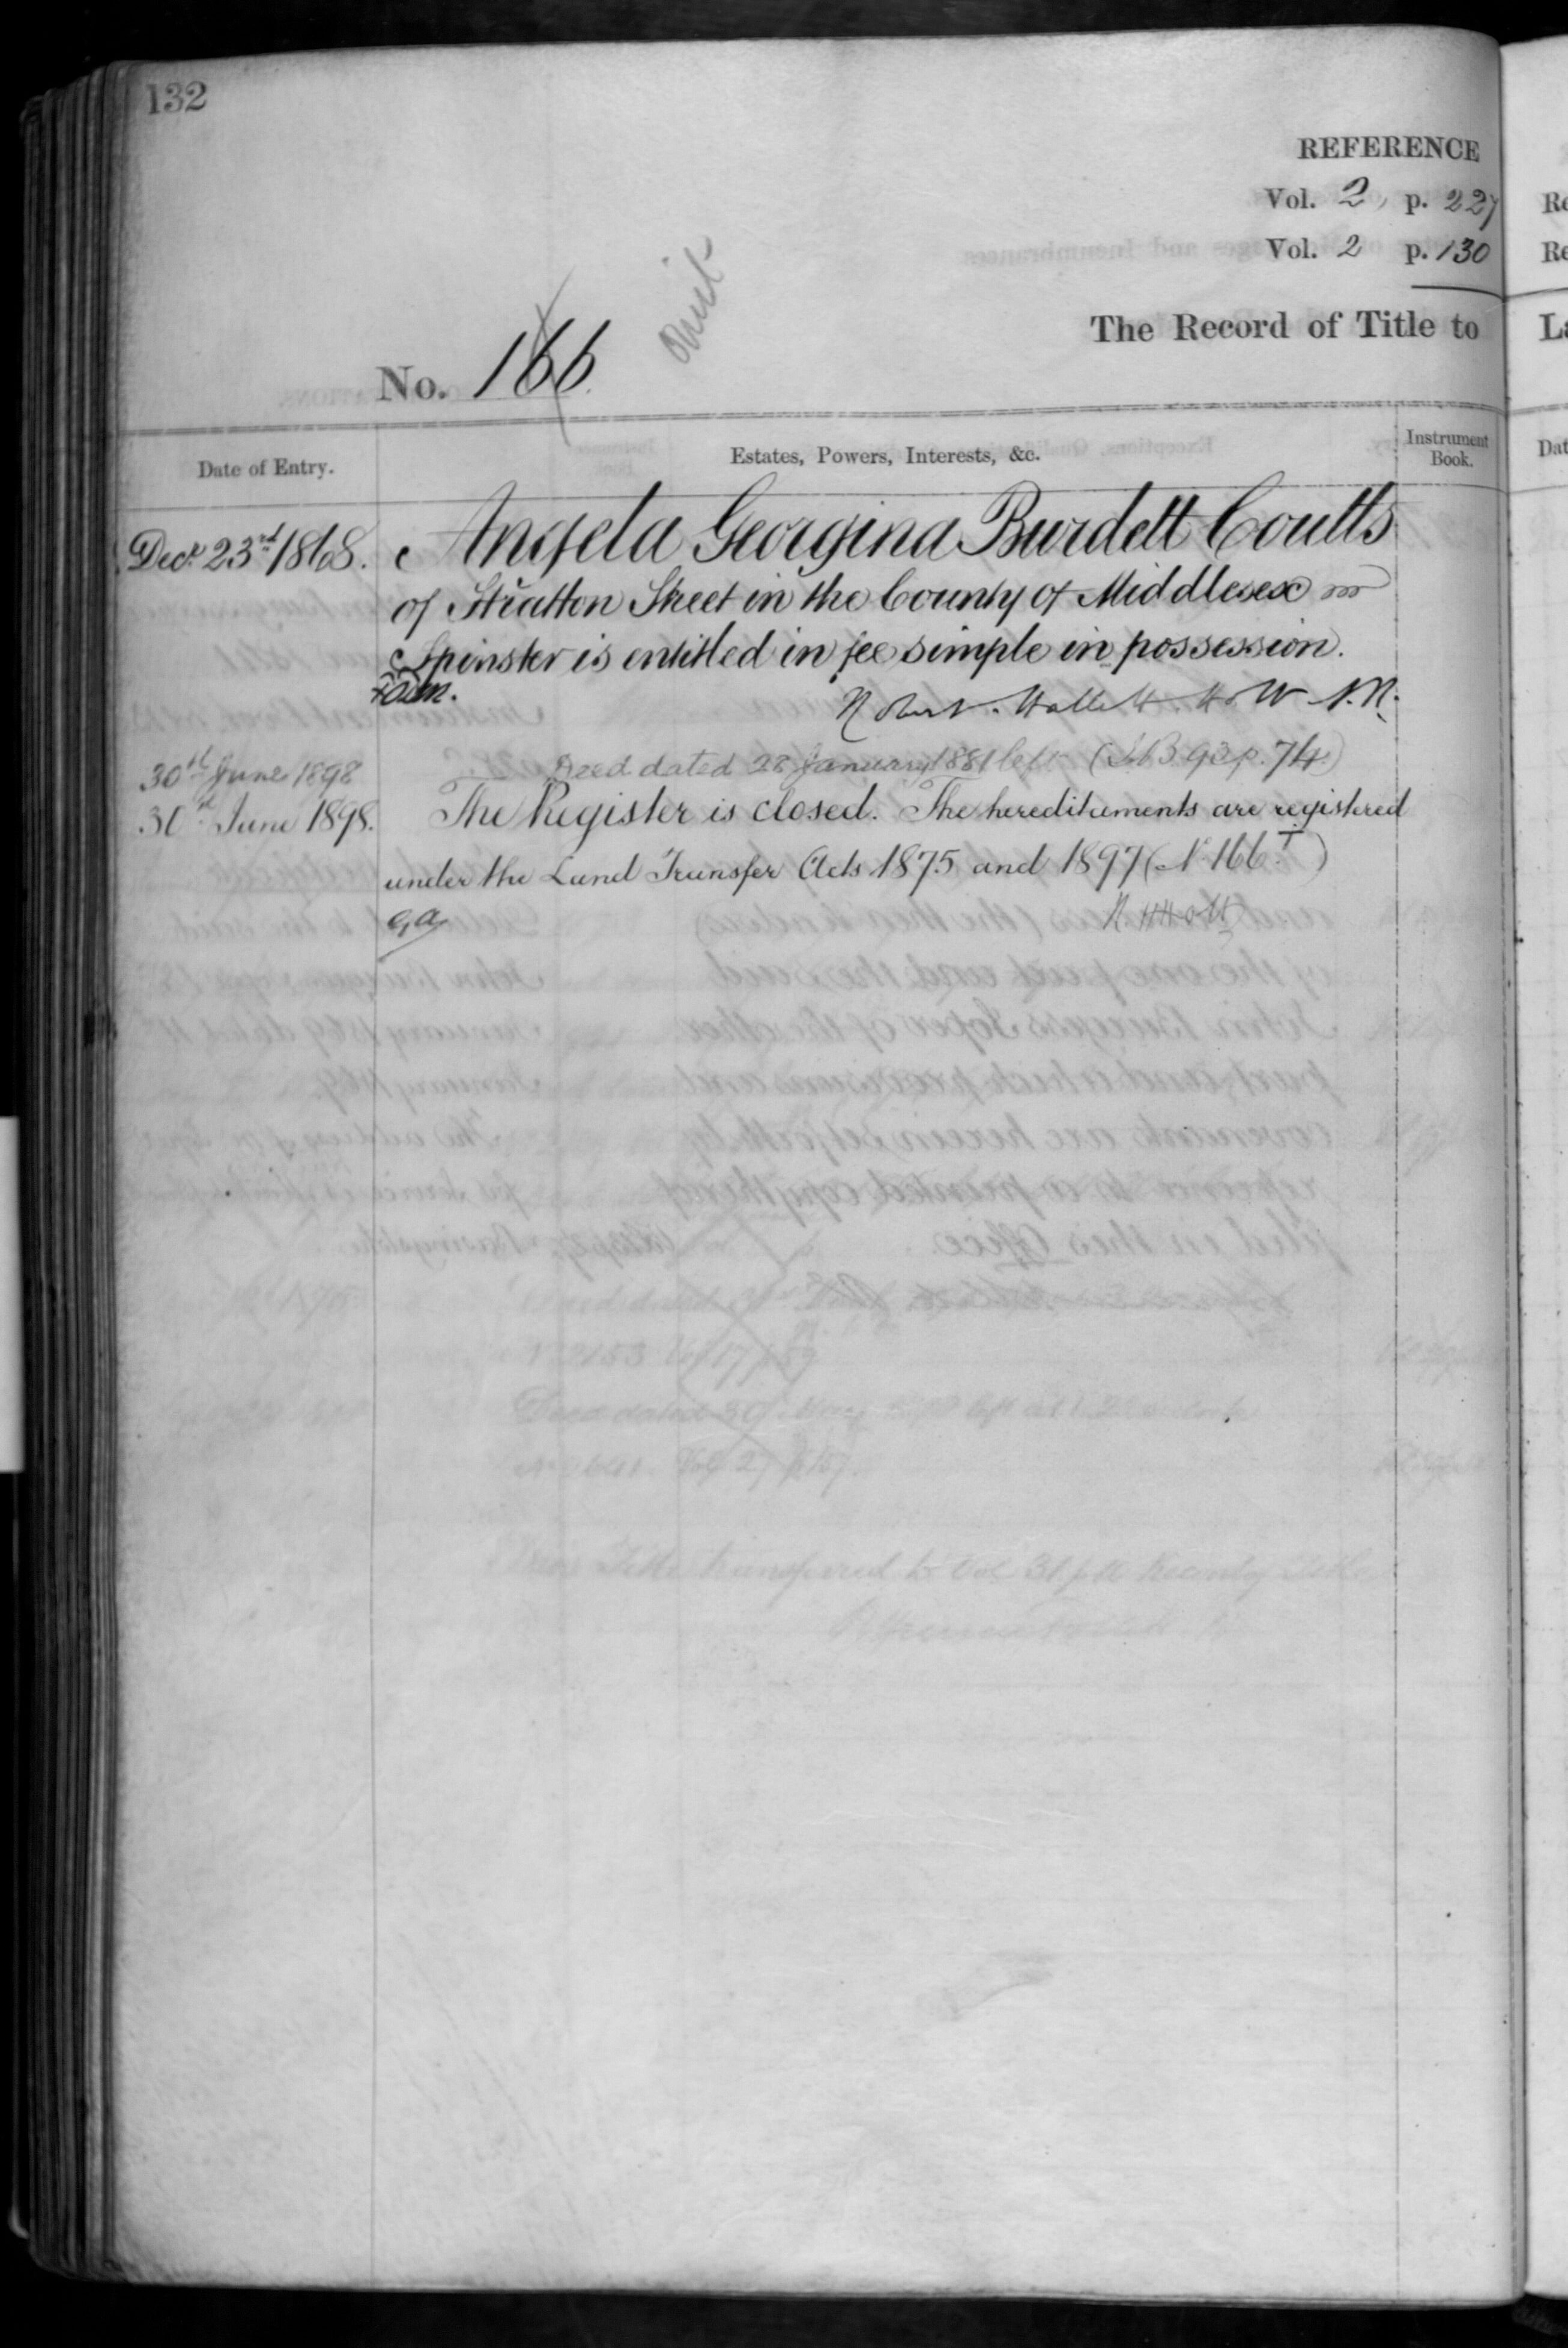 132
REFERENCE
Vol. 2, p. 227
Vol. 2 p. 130
The Record of Title to
No. 166.
Omit
Date of Entry.
Estates, Powers, Interests, &c.
Instrument Book.
Decr 23rd 1868. Angela Georgina Burdett Coutts
of Stratton Street in the County of Middlesex
Spinster is entitled in fee simple in possession.
Robert Hallett Holt A.R.
30th June 1898 Deed dated 28 January 1881 left (I.B. 93 p. 74)
30th June 1898. The Register is closed. The hereditaments are registered
under the Land Transfer Acts 1875 and 1897 (No 166 T)
R H Holt